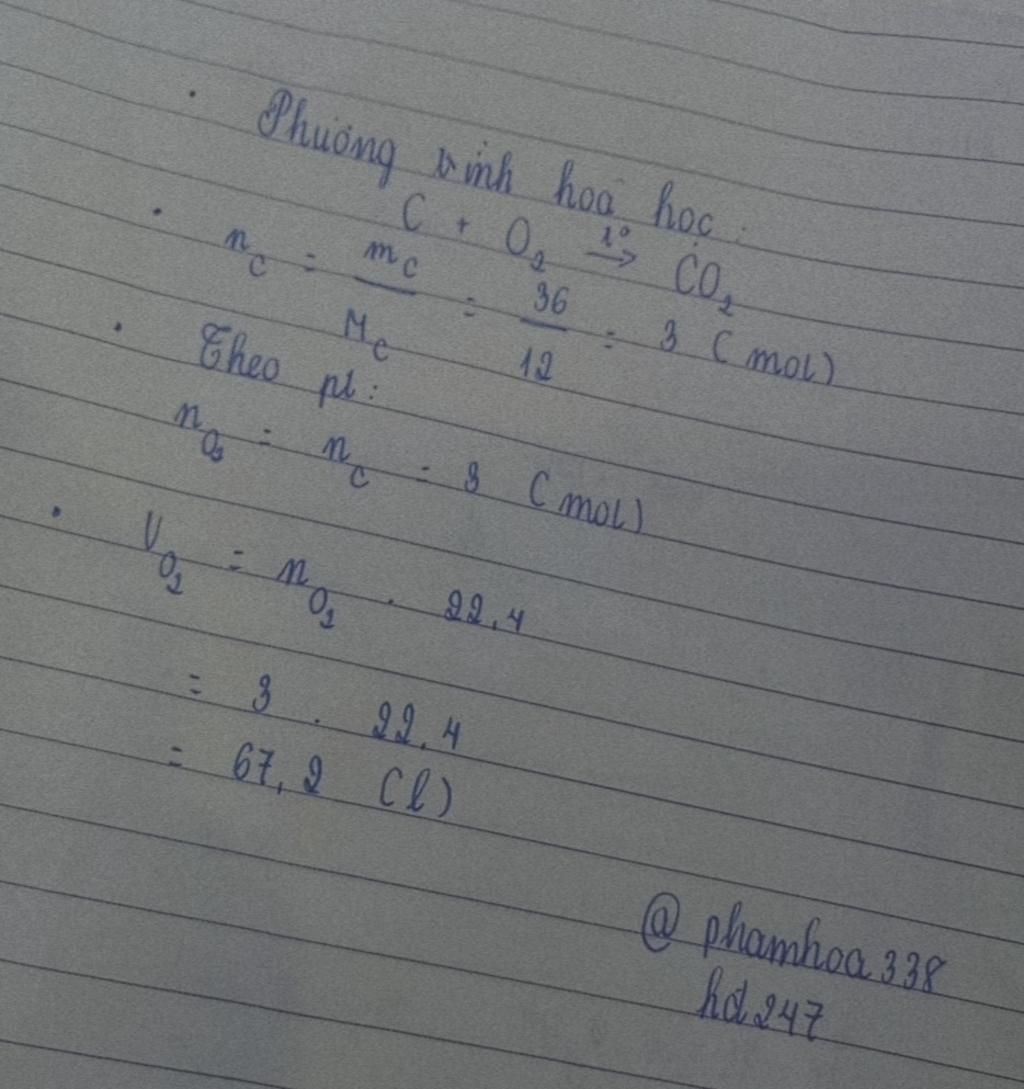 • Phương trình hoá học:
C + O₂ t°→ CO₂
• n_C = m_C / M_C = 36 / 12 = 3 (mol)
• Theo pt:
n_O₂ = n_C = 3 (mol)
• V_O₂ = n_O₂ . 22,4
= 3 . 22,4
= 67,2 (l)
@ phamhoa338
hd247